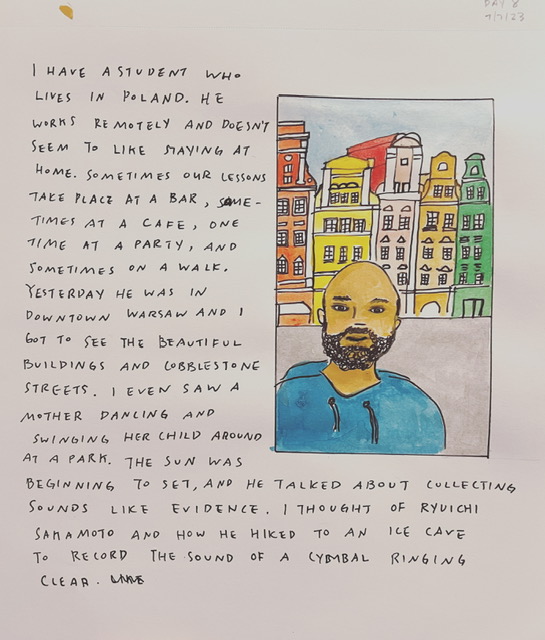 DAY 8
7/7/23
I HAVE A STUDENT WHO
LIVES IN POLAND. HE
WORKS REMOTELY AND DOESN'T
SEEM TO LIKE STAYING AT
HOME. SOMETIMES OUR LESSONS
TAKE PLACE AT A BAR, SOME-
TIMES AT A CAFE, ONE
TIME AT A PARTY, AND
SOMETIMES ON A WALK.
YESTERDAY HE WAS IN
DOWNTOWN WARSAW AND I
GOT TO SEE THE BEAUTIFUL
BUILDINGS AND COBBLESTONE
STREETS. I EVEN SAW A
MOTHER DANCING AND
SWINGING HER CHILD AROUND
AT A PARK. THE SUN WAS
BEGINNING TO SET, AND HE TALKED ABOUT COLLECTING
SOUNDS LIKE EVIDENCE. I THOUGHT OF RYUICHI
SAKAMOTO AND HOW HE HIKED TO AN ICE CAVE
TO RECORD THE SOUND OF A CYMBAL RINGING
CLEAR.